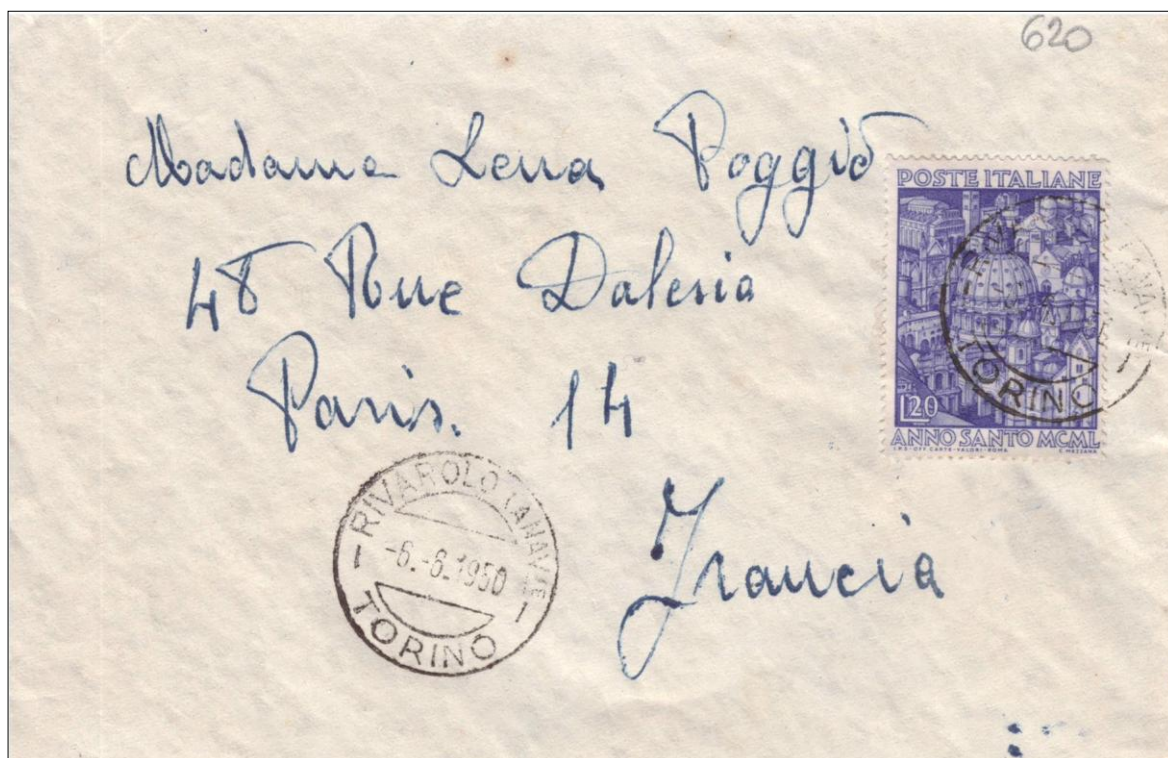 620
Madame Lena Poggiò
48 Rue Dalesia
Paris. 14
Francia
POSTE ITALIANE
L.20
ANNO SANTO MCML
I.P.S. OFF. CARTE-VALORI-ROMA
TORINO
RIVAROLO CANAVESE
-6.-6.1950
TORINO